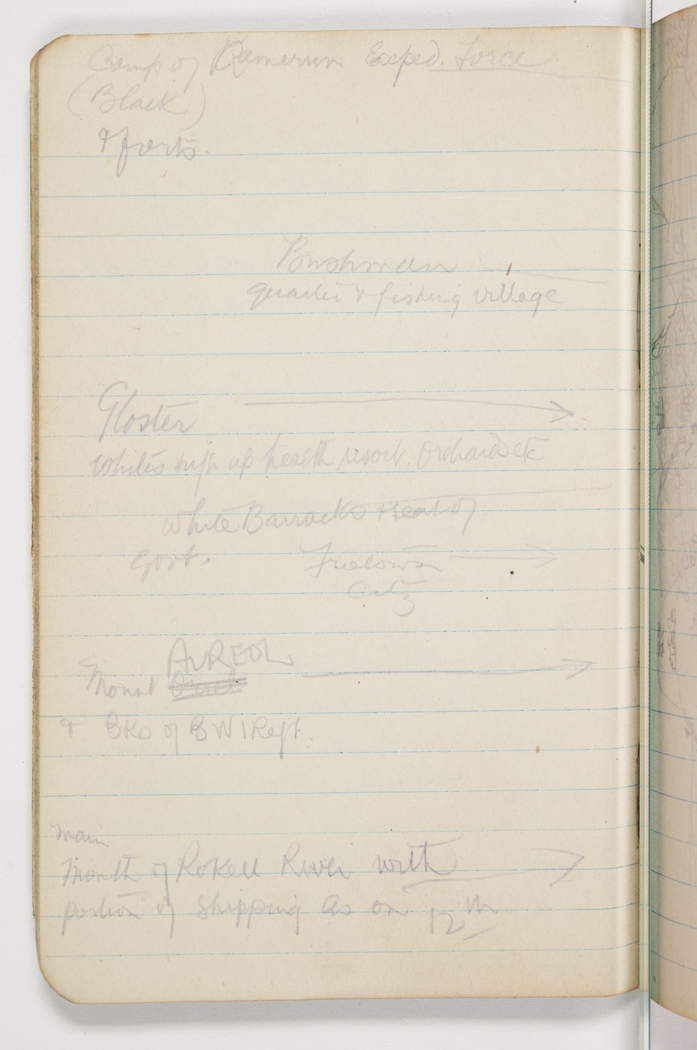 Camp of Kamerun Exped. Force
(Black)
& forts.
Bushman
quarter & fishing village
Gloster
Whites high up health resort. Orchards etc
White Barracks & seat of
Govt. Freetown
City
AUREOL
Mount
& Bks of BWI Regt.
main
Mouth of Rokell River with
portion of shipping as on 12th